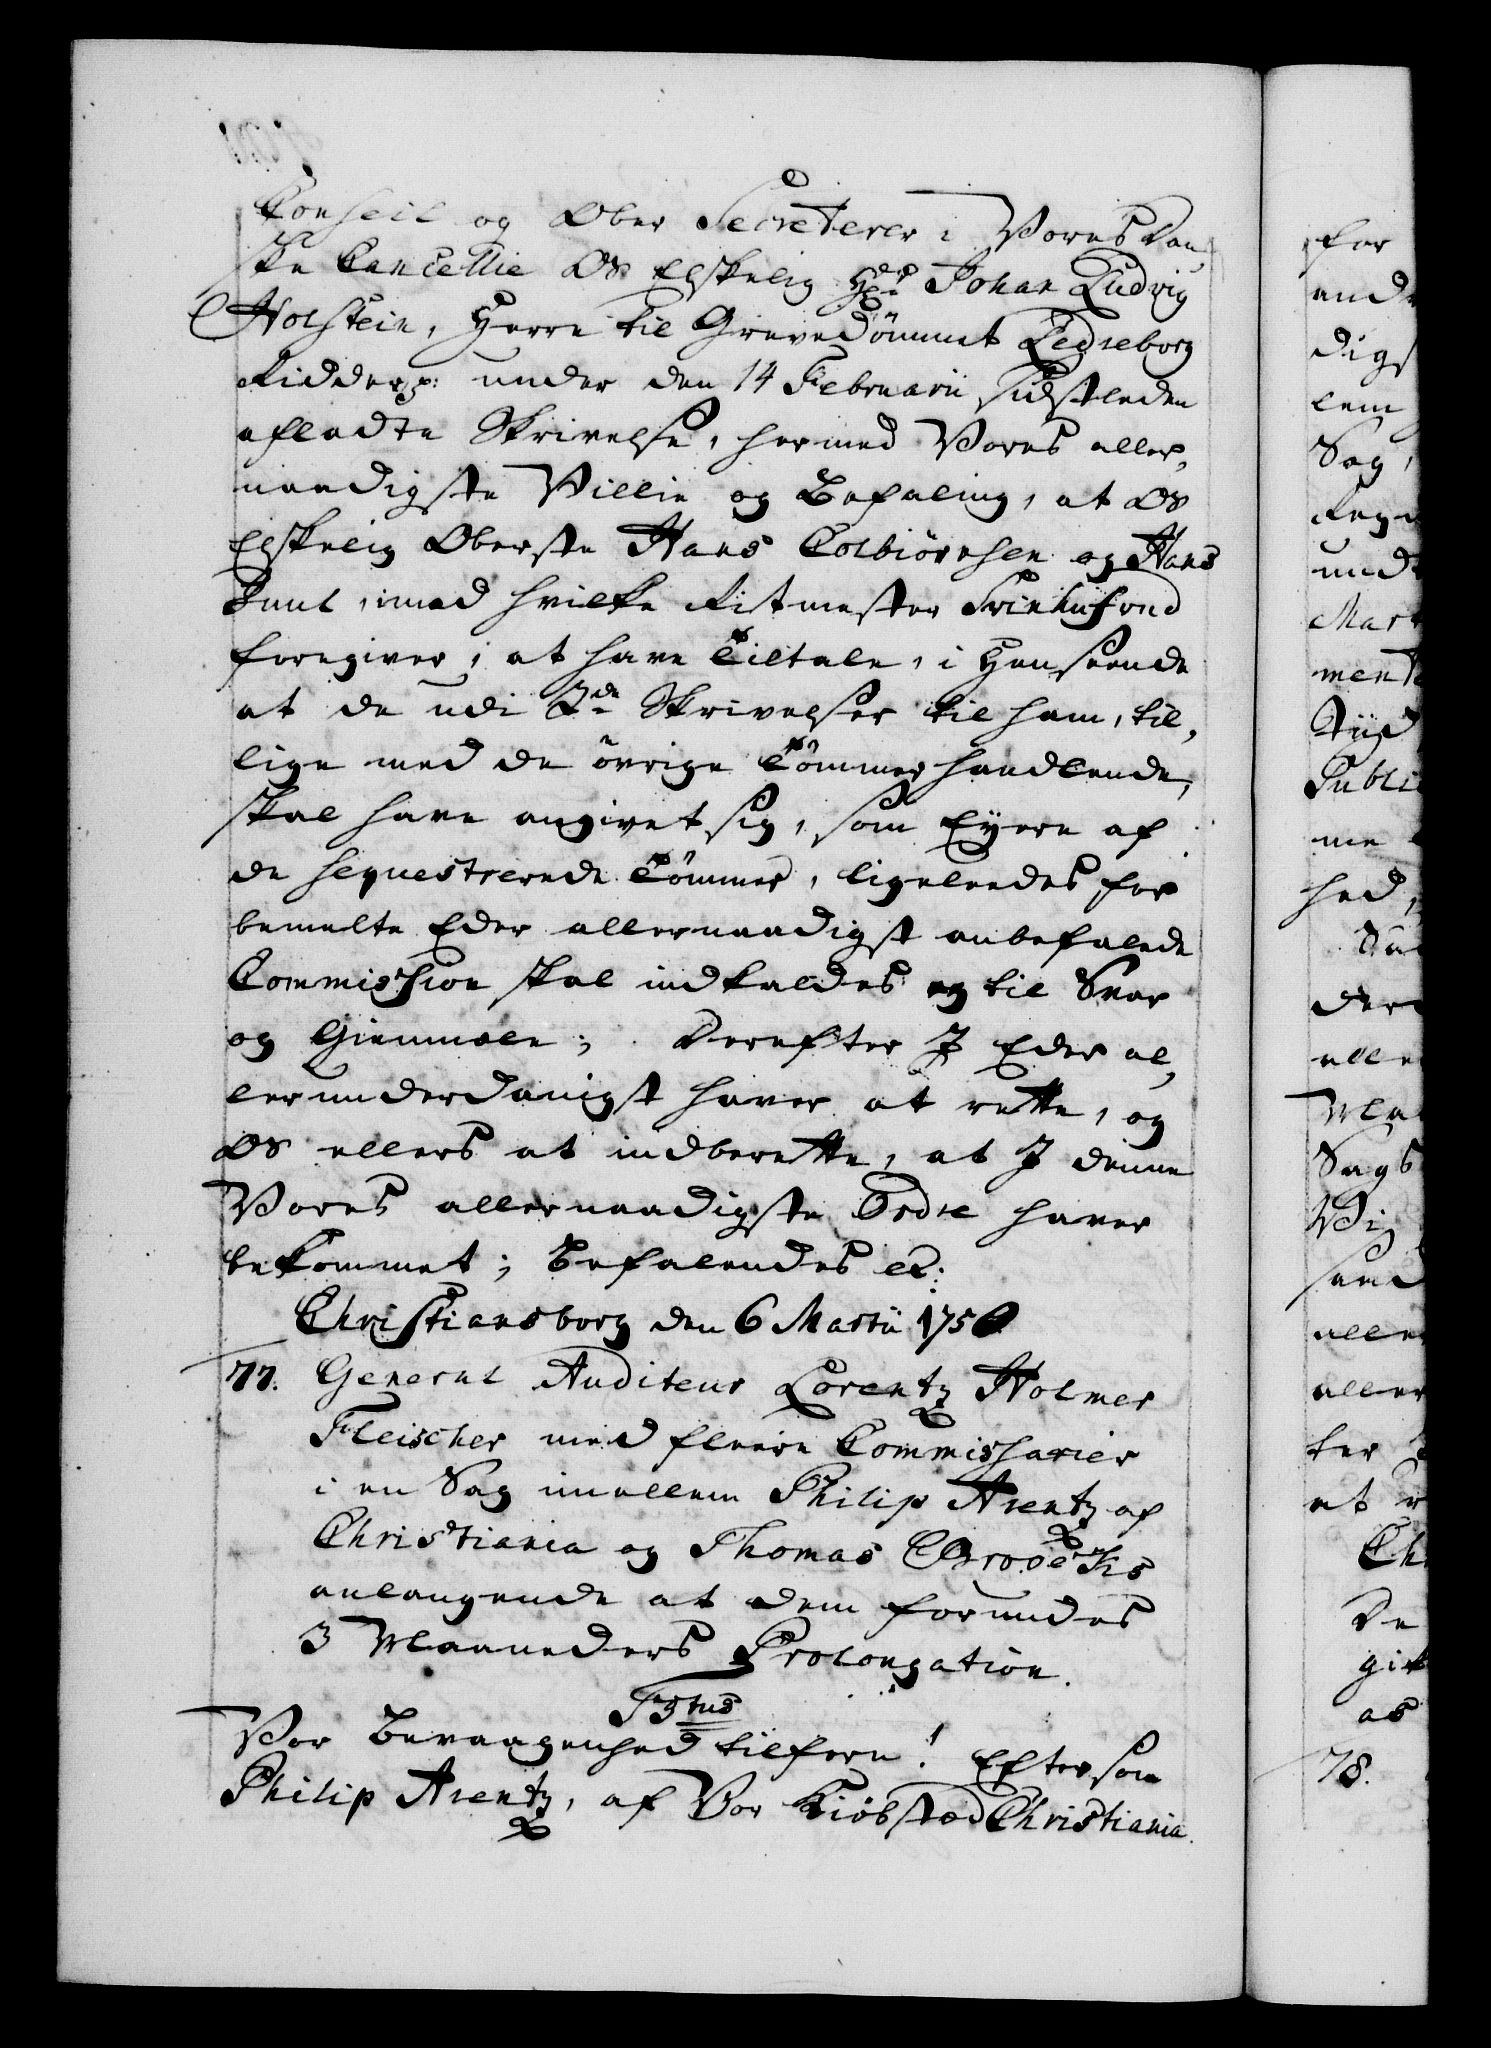 Conseil og Ober Secreterer i Vores Dan,
ske Cancellie Os Elskelig Hr: Johan Ludvig
Holstein, Herre til Grevedömmet Ledreborg
Ridder p: under den 14 Februarii sidstleden
afladte Skrivelse, hermed Vores aller,
naadigste Villie og Befaling, at Os
Elskelig Oberste Hans Colbiörnsen og Hans
Juul, imod hvilke Ritmester
foregiver, at have Tiltale, i Henseende
at de udi 2de Skrivelser til ham, til,
lige med de övrige Tömmerhandlende,
skal have angivet sig, som Eyere af
de sequestrerede Tömmer, ligeleedes for
bemelte Eder allernaadigst anbefalede
Commission skal indkaldes og til Svar
og Giennmæle; Derefter I Eder al,
lerunderdanigst haver at rette, og
Os ellers at indberette, at I denne
Vores allernaadigste Ordre haver
bekommet; Befalendes etc:
Christiansborg den 6 Martii 1750
77. General Auditeur Lorentz Holmer
Fleischer med fleere Commissarier
i en Sag imellem Philip Arentz af
Christiania og Thomas
anlangende at dem forundes
3 Maaneders Prolongation.
F5tus
Vor Bevaagenhed tilforn! Eftersom
Philip Arentz, af Vor Kiöbsted Christiania
for
digst
lem
Sag,
ment
Tiid
Publi
me
hed,
alle
Sags
Vi
alle
aller
ter
at
Ch
De
git
as
78.